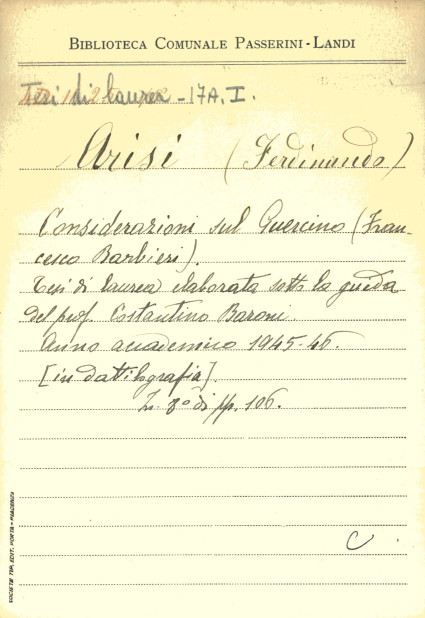 BIBLIOTECA COMUNALE PASSERINI-LANDI
Tesi di laurea - 17A. I.
Arisi (Ferdinando)
Considerazioni sul Guercino (Fran-
cesco Barbieri).
Tesi di laurea elaborata sotto la guida
del prof. Costantino Baroni.
Anno accademico 1945-46.
[in dattilografia].
In 8º di pp. 106.
C.
SOCIETÀ TIP. EDIT. PORTA - PIACENZA